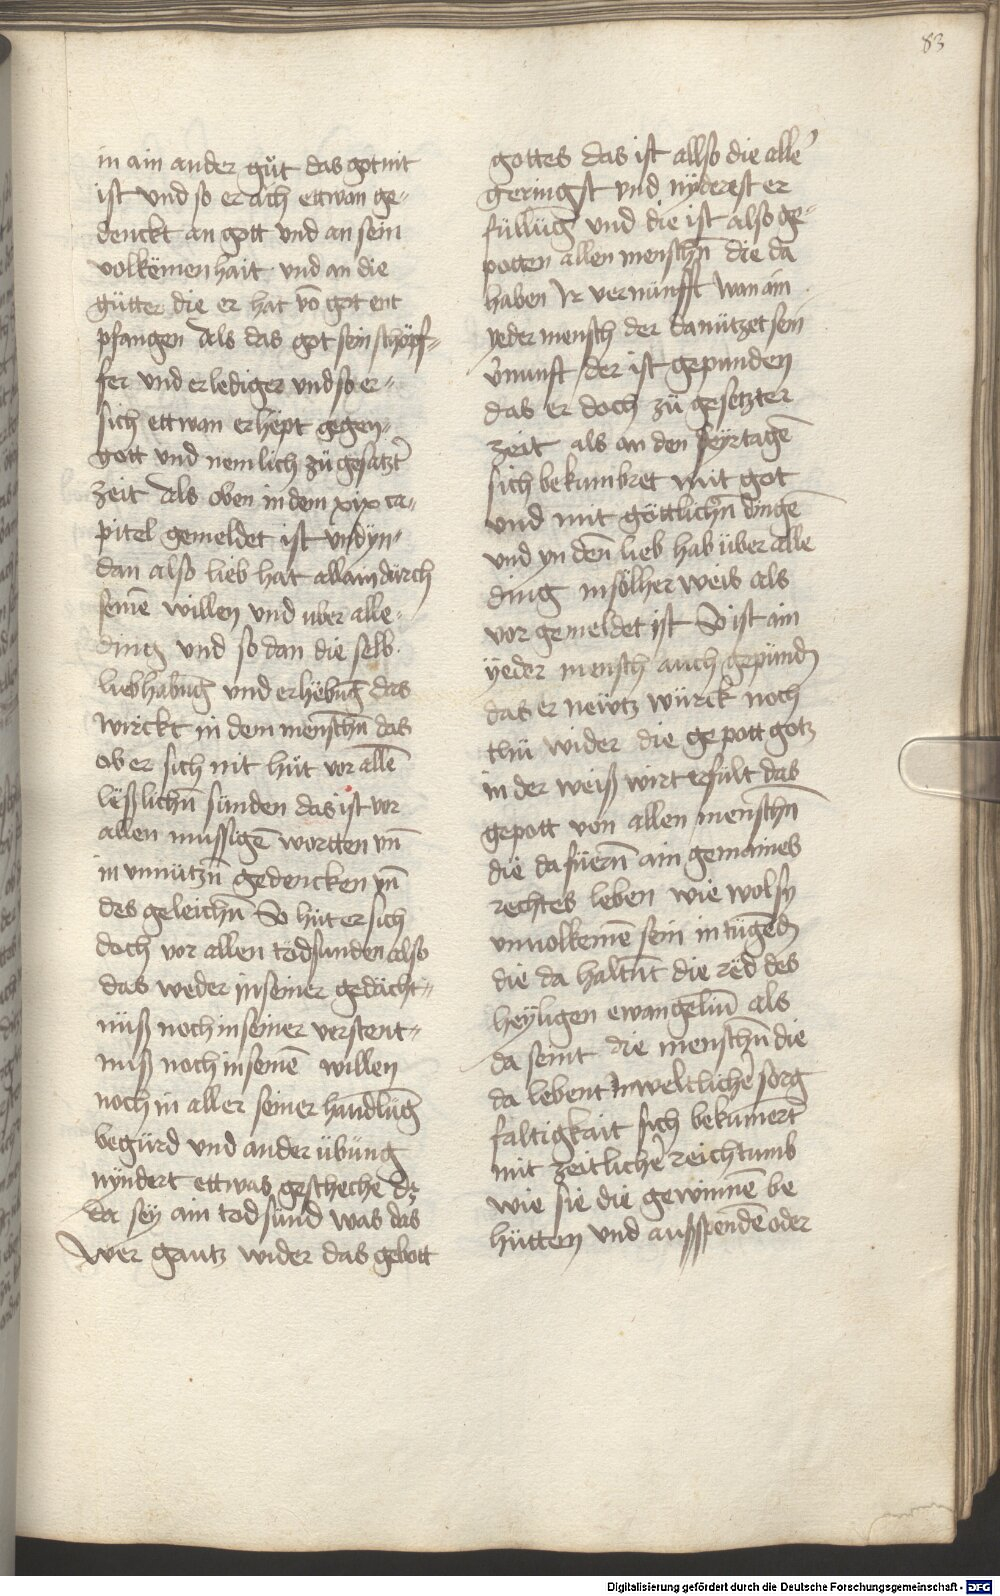 83
in ain ander gůt das got nit
ist vnd so er ach ettwan ge-
denckt an gott vnd an sein
volkömenhait vnd an die
gütter die er hat vō got ent
pfangen Als das got sein schöpf-
fer vnd erlediger vnd so er-
sich ettwan erhept gegen-
gott vnd nemlich zü gesatzt̉
zeit Als oben in dem xix ca-
pitel gemeldet ist vnd yn-
dan also lieb hat allain durch
seinē willen vnd uber alle-
ding vnd so dan die selb
liebhabūg vnd erhēbūg das
wirckt in dem menschn̄ das
ob er sich nit hüt vor allē
leßlichn̄ sünden das ist vor
allen mussigē wortten vn̄
in vnnützn̄ gedencken vn̄
des geleichn̄ So hüt er sich
doch vor allen todsunden also
das weder in seiner gedächt-
nüß noch in seiner verstent-
niß noch in seinē willen
noch in aller seiner handlūg
begürd vnd ander übung
nyndert ettwas geschechē dz
da sey ain tod sünd was das
wer gantz wider das gebott
gottes das ist allso die aller̉
geringst vnd nyderest er
füllūg vnd die ist also ge-
potten allen menschn̄ die da
haben Ir vernünfft wan ain
yeder mensch der da nützet sein
v̉nunft der ist gepunden
das er doch zü gesetzter
zeit als an den feyrtagē
sich bekumbret mit got
vnd mit göttlichn̄ dingē
vnd yn den̄ lieb hab über alle
ding in sölher weis als
vor gemeldet ist So ist ain
yeder mensch auch gepünd̄
das er newtz würck noch
thü wider die gepott gotz
in der weiß wirt erfült das
gepott von allen menschn̄
die da füern̄ ain gemaines
rechtes leben wie wol sy
vnuolkemē sein in tügēd̄
die da haltn̄t die red des
heyligen ewangeliū als
da seint die menschn̄ die
da lebent In weltlicher̉ sorg
faltigkait sich bekūmert̄
mit zeitlicher̉ reichtumb
wie sie die gewinnē be
hütten vnd ausspendē oder
Digitalisierung gefördert durch die Deutsche Forschungsgemeinschaft - DFG